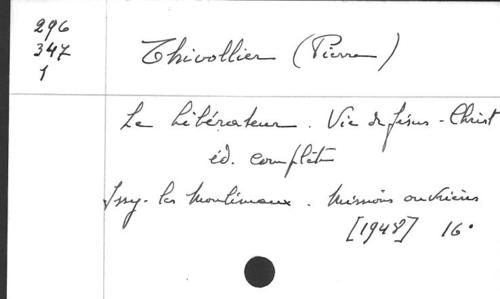 296
347
1
Thivollier (Pierre)
Le Libérateur. Vie de Jésus-Christ
éd. complète
Issy-les Moulineaux. Missions ouvrières
[1948] 16°